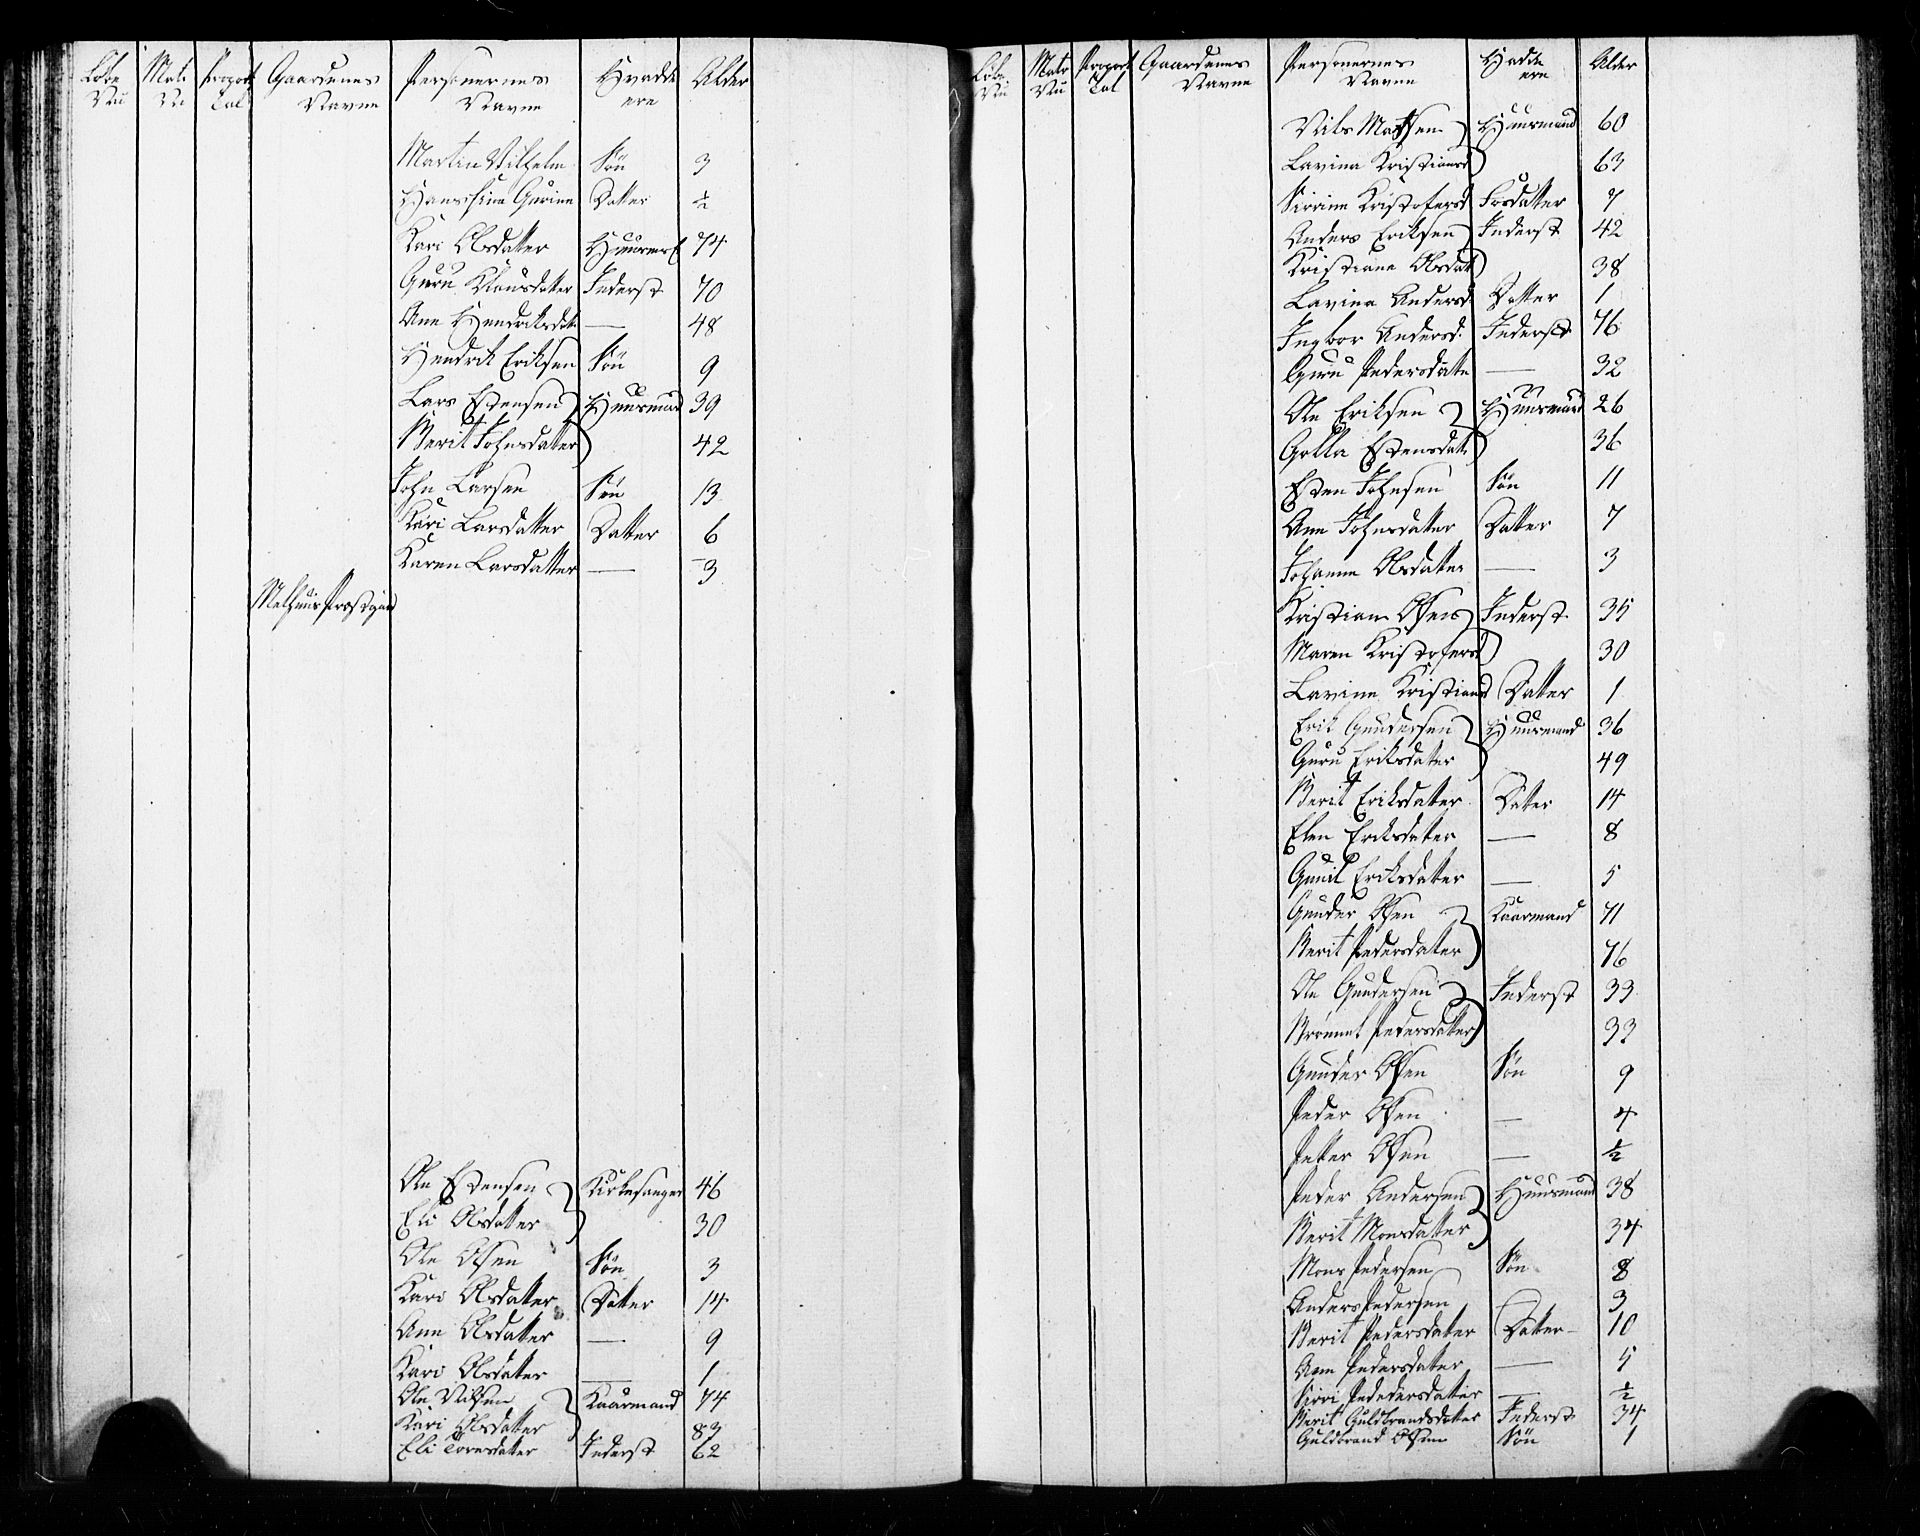 Löbe Nu | Mat: Nu | Proport Tal | Gaardenes Navne | Personernes Navne | Hvadde ere | Alder
Martin Vilhelm | Sön | 3
Hansfina Gurine | Datter | ½
Kari Olsdatter | Huusmd | 74
Guru Klausdatter | Inderst | 70
Ane Hendriksdat | — | 48
Hendrik Eriksen | Sön | 9
Lars Estensen | Huusmand | 39
Berit Johnsdatter | 42
John Larsen | Sön | 13
Kari Larsdatter | Datter | 6
Karen Larsdatter | — | 3
Melhuus Præstgaard
Ole Estensen | Kirkesanger | 46
Eli Olsdatter | 30
Ole Olsen | Sön | 3
Kari Olsdatter | Datter | 14
Ane Olsdatter | — | 9
Kari Olsdatter | — | 1
Ole Nilsen | Kaarmand | 74
Kari Olsdatter | 83
Eli Toresdatter | Inderst | 62
Löbe Nu | Matr Nu | Proport Tal | Gaardenes Navne | Personernes Navne | Hvadde ere | Alder
Nils Matsen | Huusmand | 60
Lavina Kristiansd | 63
Sirrine Kristofersd | Fosdatter | 7
Anders Eriksen | Inderst | 42
Kristiane Olsdat | 38
Lavina Andersd | Datter | 1
Ingbor Andersd. | Inderst | 76
Guru Pedersdatte | — | 32
Ole Eriksen | Huusmand | 26
Golla Estensdatt | 36
Esten Johnsen | Sön | 11
Ane Johnsdatter | Datter | 7
Johanne Olsdatter | — | 3
Kristian Olsens | Inderst | 35
Maren Kristofersd | 30
Lavine Kristiansd | Datter | 1
Erik Gundersen | Huusmand | 36
Guru Eriksdatter | 49
Berit Eriksdatter | Datter | 14
Elen Eriksdatter | — | 8
Gunil Eriksdatter | — | 5
Gunder Olsen | Kaarmand | 71
Berit Pedersdatter | 76
Ole Gundersen | Inderst | 33
Brönnet Pedersdatter | 33
Gunder Olsen | Sön | 9
Peder Olsen | — | 4
Petter Olsen | — | ½
Peder Andersen | Huusmand | 38
Berit Monsdatter | 34
Mons Pedersen | Sön | 8
Anders Pedersen | 3
Berit Pedersdatter | Datter | 10
Ane Pedersdatter | — | 5
Sirri Pededersdatter | — | ½
Berit Guldbrandsdatter | Inderst | 34
Guldbrand Olsen | Sön | 1